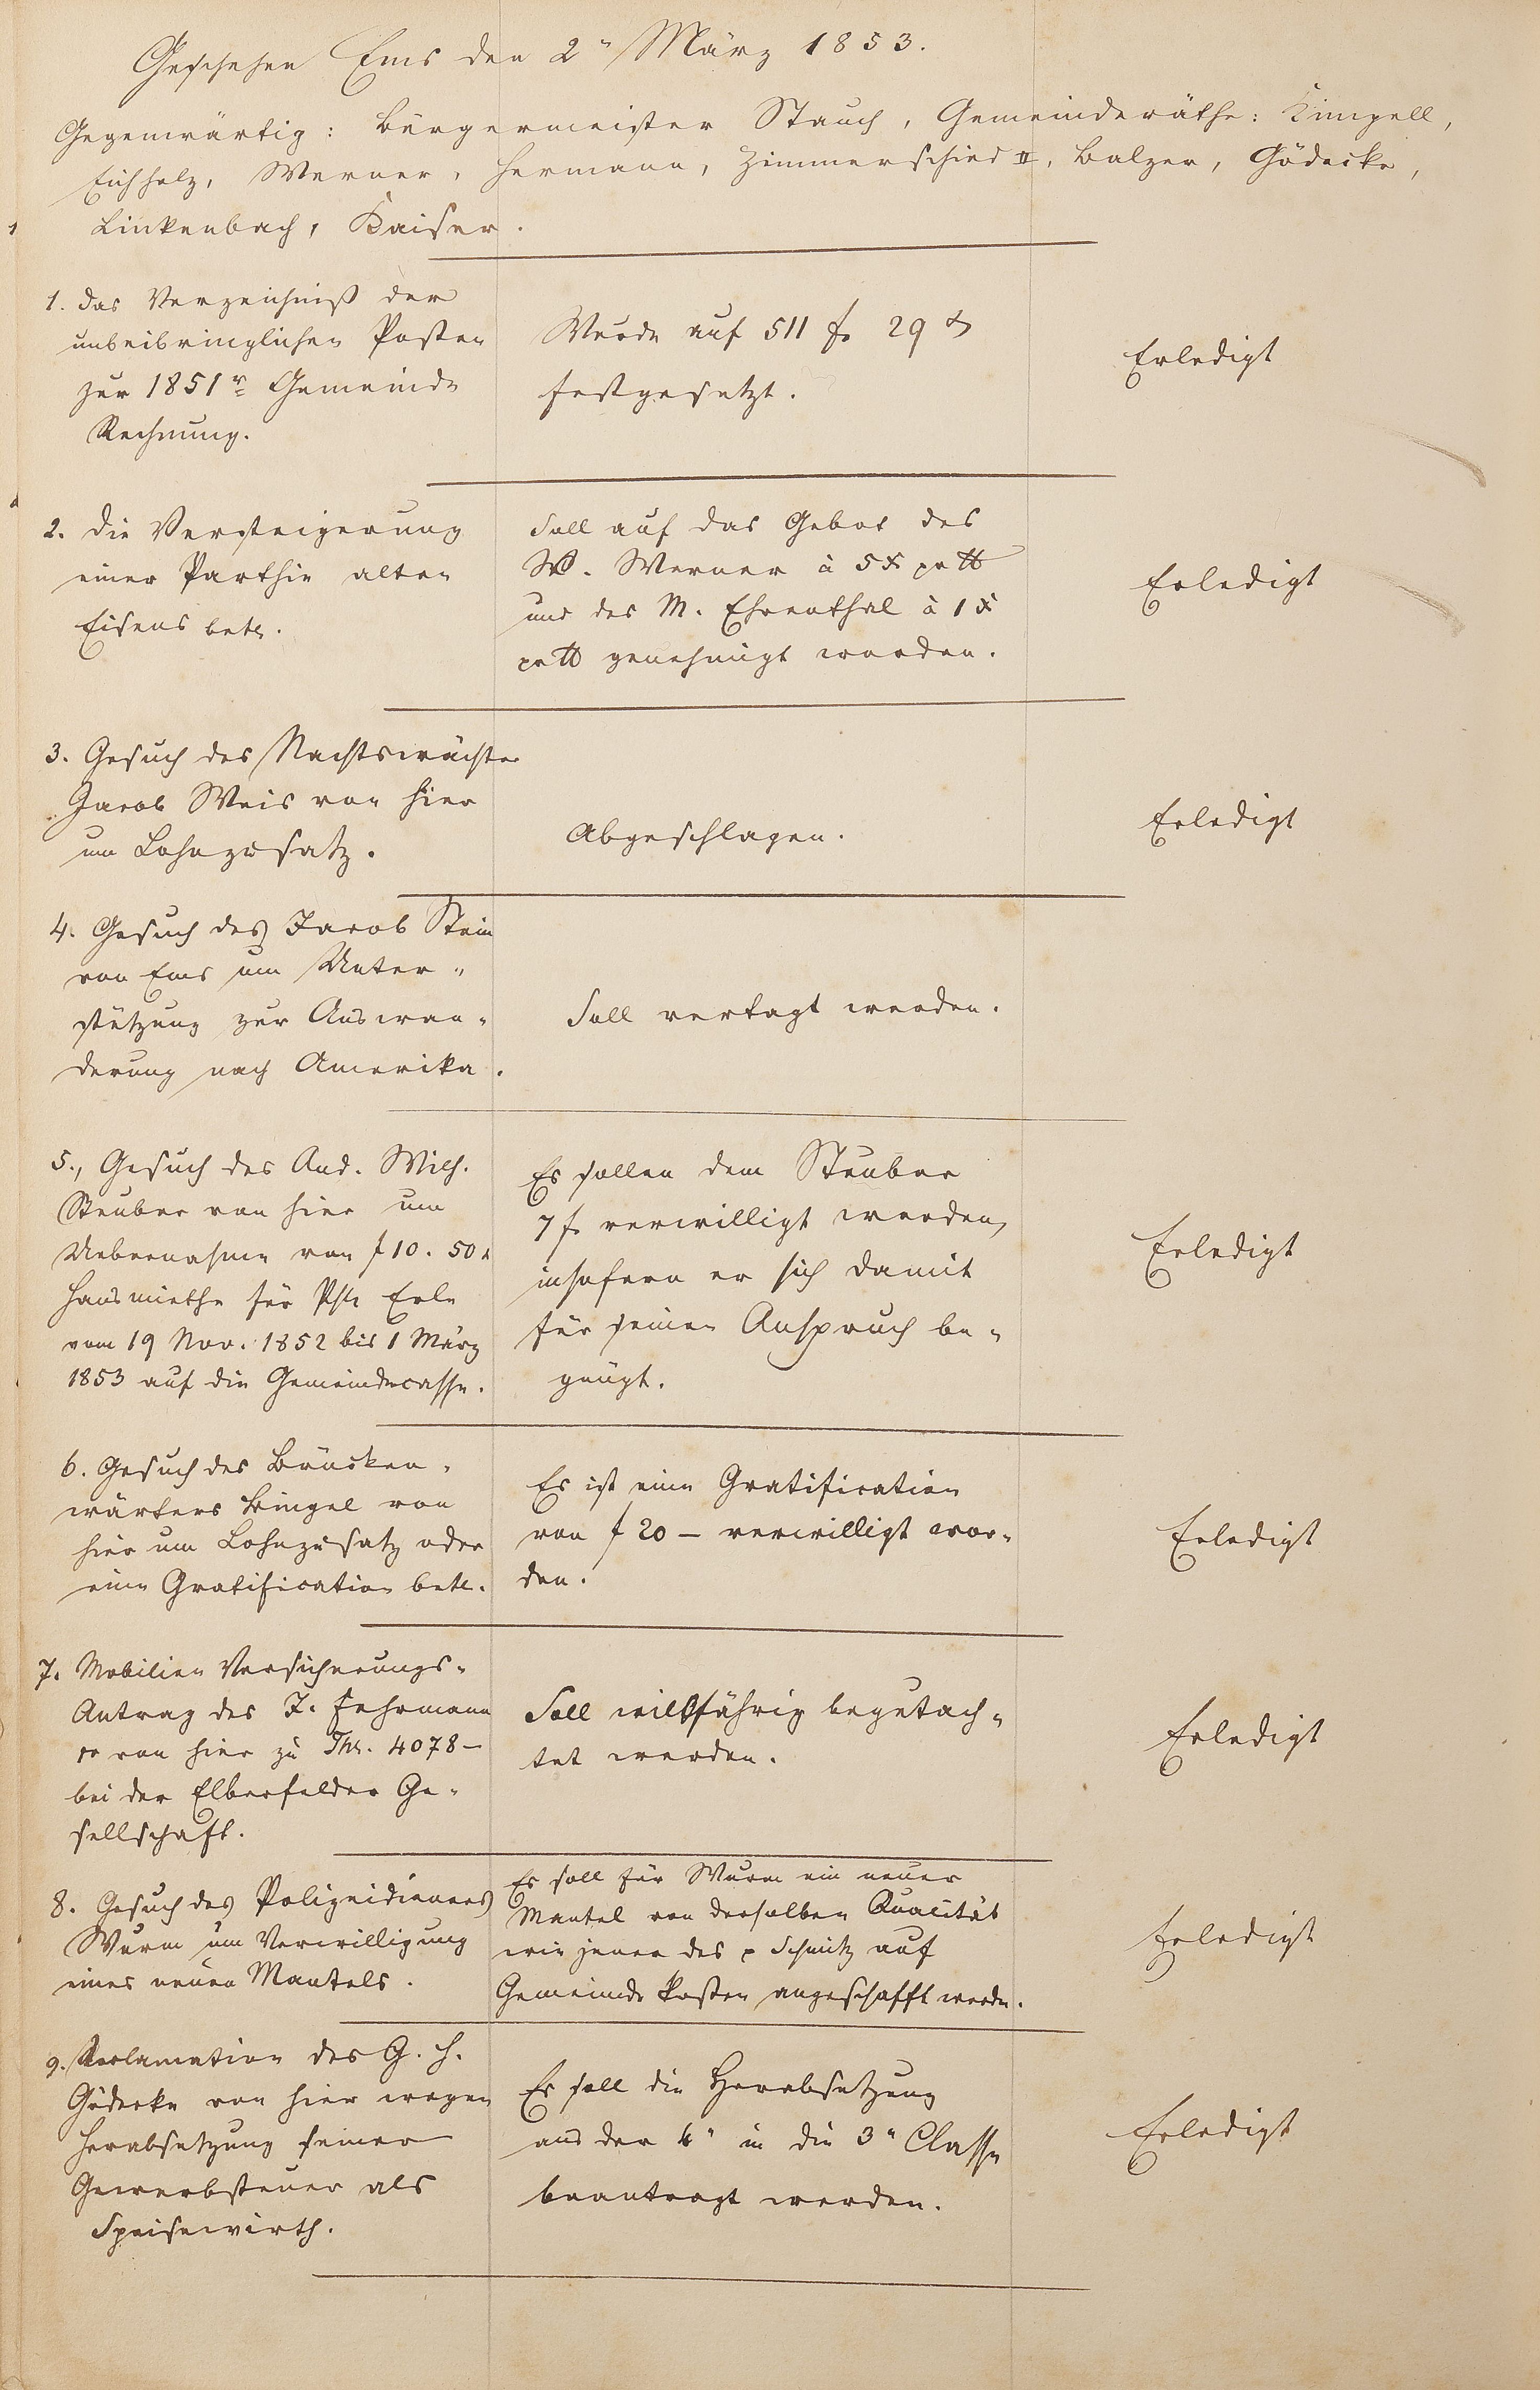 Geschehen Ems den 2" März 1853.
Gegenwärtig: Bürgermeister Stauch, Gemeinderäthe: Kimpell,
Eichholz, Werner, Hermann, Zimmerschied II, Balzer, Gödecke,
Linkenbach, Kaiser.
1. Das Verzeichniß der
unbeibringlichen Posten
zur 1851r Gemeinde
Rechnung.
Wurde auf 511 f. 29 x
festgesetzt.
Erledigt
2. Die Versteigerung
einer Parthie alten
Eisens betr.
Soll auf das Gebot des
W. Werner à 5 x pr ℔
und des M. Ehrenthal à 1 x
pr ℔ genehmigt werden.
Erledigt
3. Gesuch des Nachtswächter
Jacob Weis von hier
um Lohnzusatz.
Abgeschlagen.
Erledigt
4. Gesuch des Jacob Stein
von Ems um Unter-
stützung zur Auswan-
derung nach Amerika.
Soll vertagt werden.
5., Gesuch des And. Wilh.
Steuber von hier um
Uebernahme von f 10. 50 x
Hausmiethe für Erle
vom 19 Nov. 1852 bis 1 März
1853 auf die Gemeindecasse.
Es sollen dem Steuber
7 f. verwilligt werden,
insofern er sich damit
für seinen Anspruch be-
gnügt.
Erledigt
6. Gesuch des Brücken-
wärters Bingel von
hier um Lohnzusatz oder
eine Gratification betr.
Es ist eine Gratification
von f 20 – verwilligt wor-
den.
Erledigt
7. Mobilien Versicherungs-
Antrag des J. Fehrmann
von hier zu Thr. 4078 –
bei der Elberfelder Ge-
sellschaft.
Soll willfährig begutach-
tet werden.
Erledigt
8. Gesuch des Polizeidieners
Wurm um Verwilligung
eines neuen Mantels.
Es soll für Wurm ein neuer
Mantel von derselben Qualität
wie jener des p Schmitz auf
Gemeinde Kosten angeschafft werden.
Erledigt
9. Reclamation des G. H.
Gödecke von hier wegen
Herabsetzung seiner
Gewerbsteuer als
Speisewirth.
Es soll die Herabsetzung
aus der 4" in die 3" Classe
beantragt werden.
Erledigt